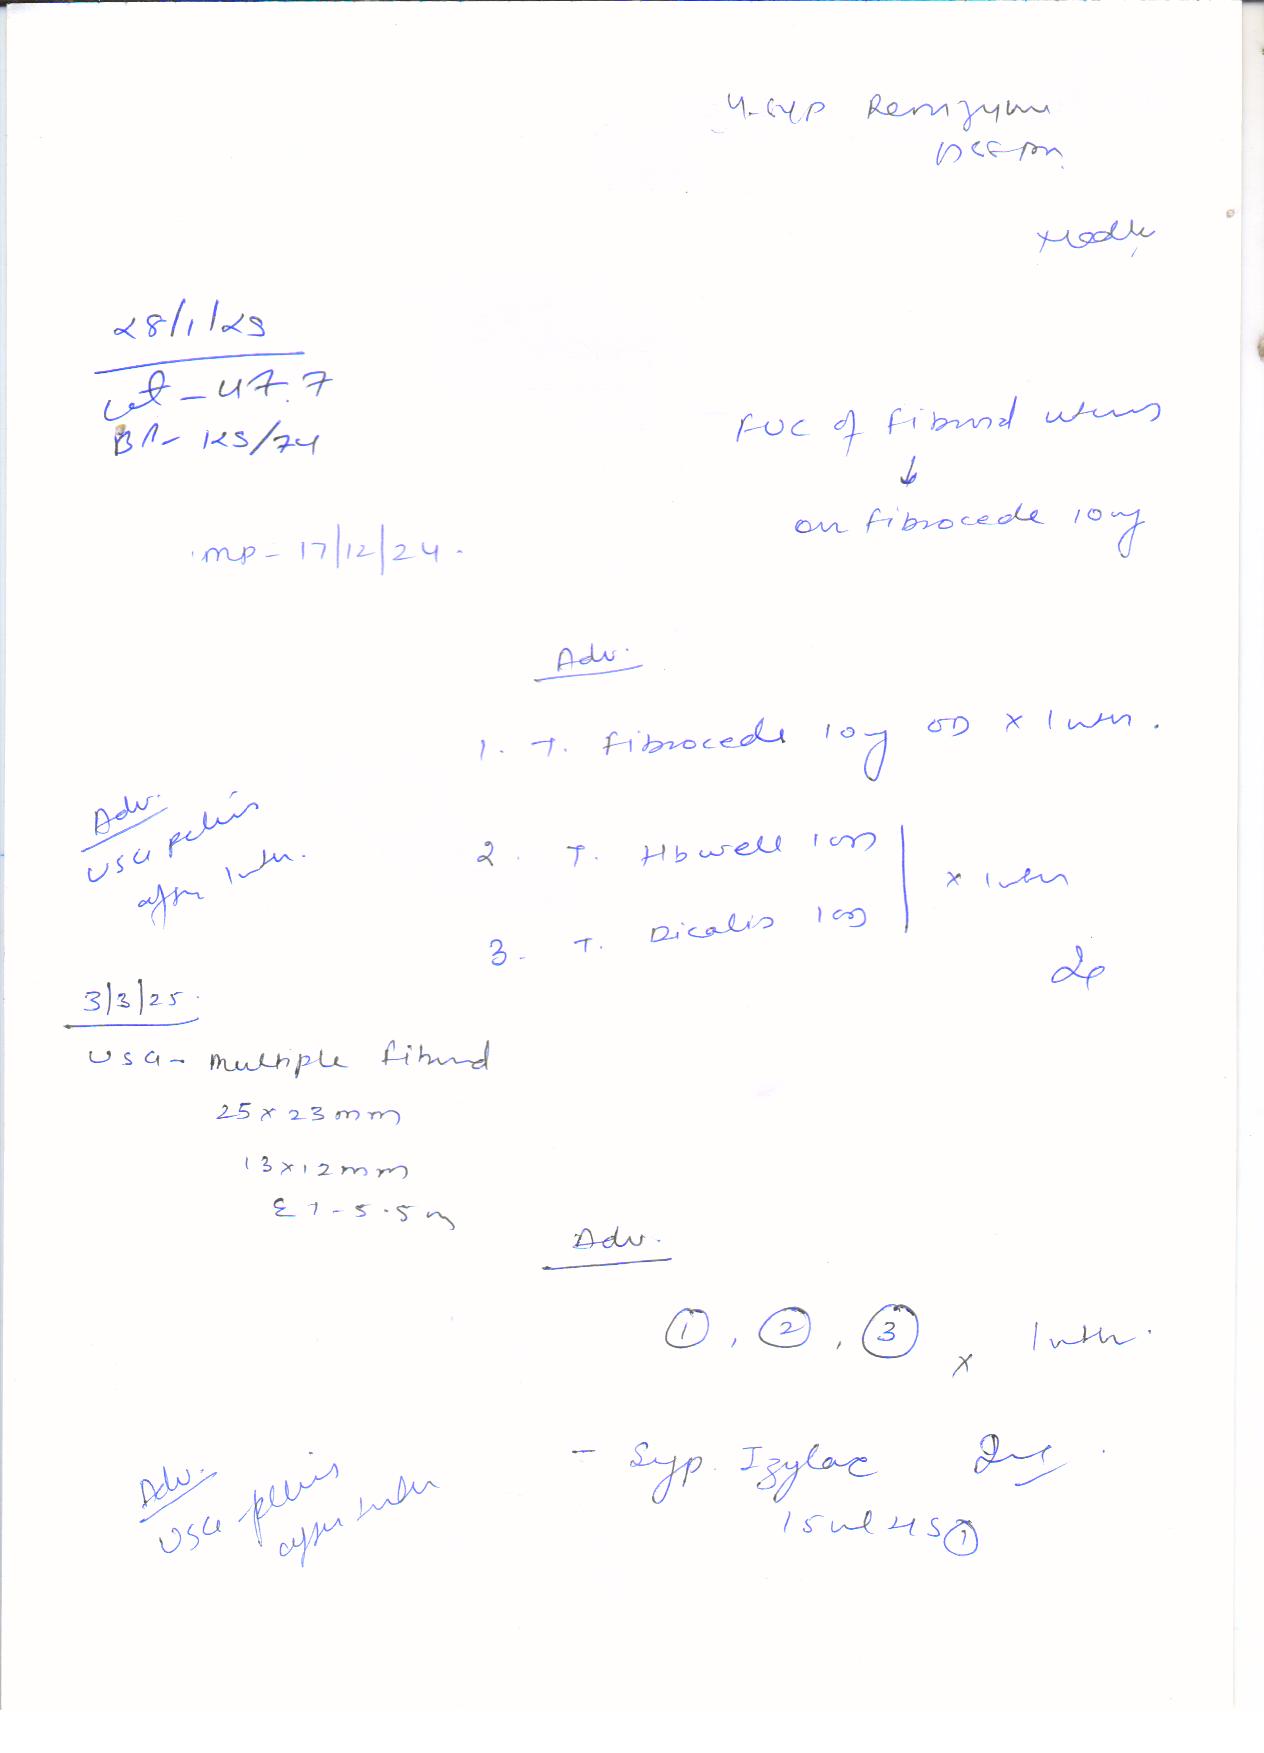 4. Syp Remzyme
28/1/25
wt - 47.7
BP - 125/74
FUC of fibroid uterus
↓
on fibrocede 10mg
LMP - 17/12/24.
Adv.
1. T. Fibrocede 10mg OD x 1 mth.
Adv.
USG pelvis
after 1 mth.
2. T. Hbwell 1 OD
x 1 mth
3. T. Dicalis 1 OD
3/3/25.
USG - multiple fibroid
25 x 23 mm
13 x 12 mm
ET - 5.5 m
Adv.
①, ②, ③ x 1 mth.
- Syp. Izylac
15 ml HS
Adv.
USG pelvis
after 1 mth